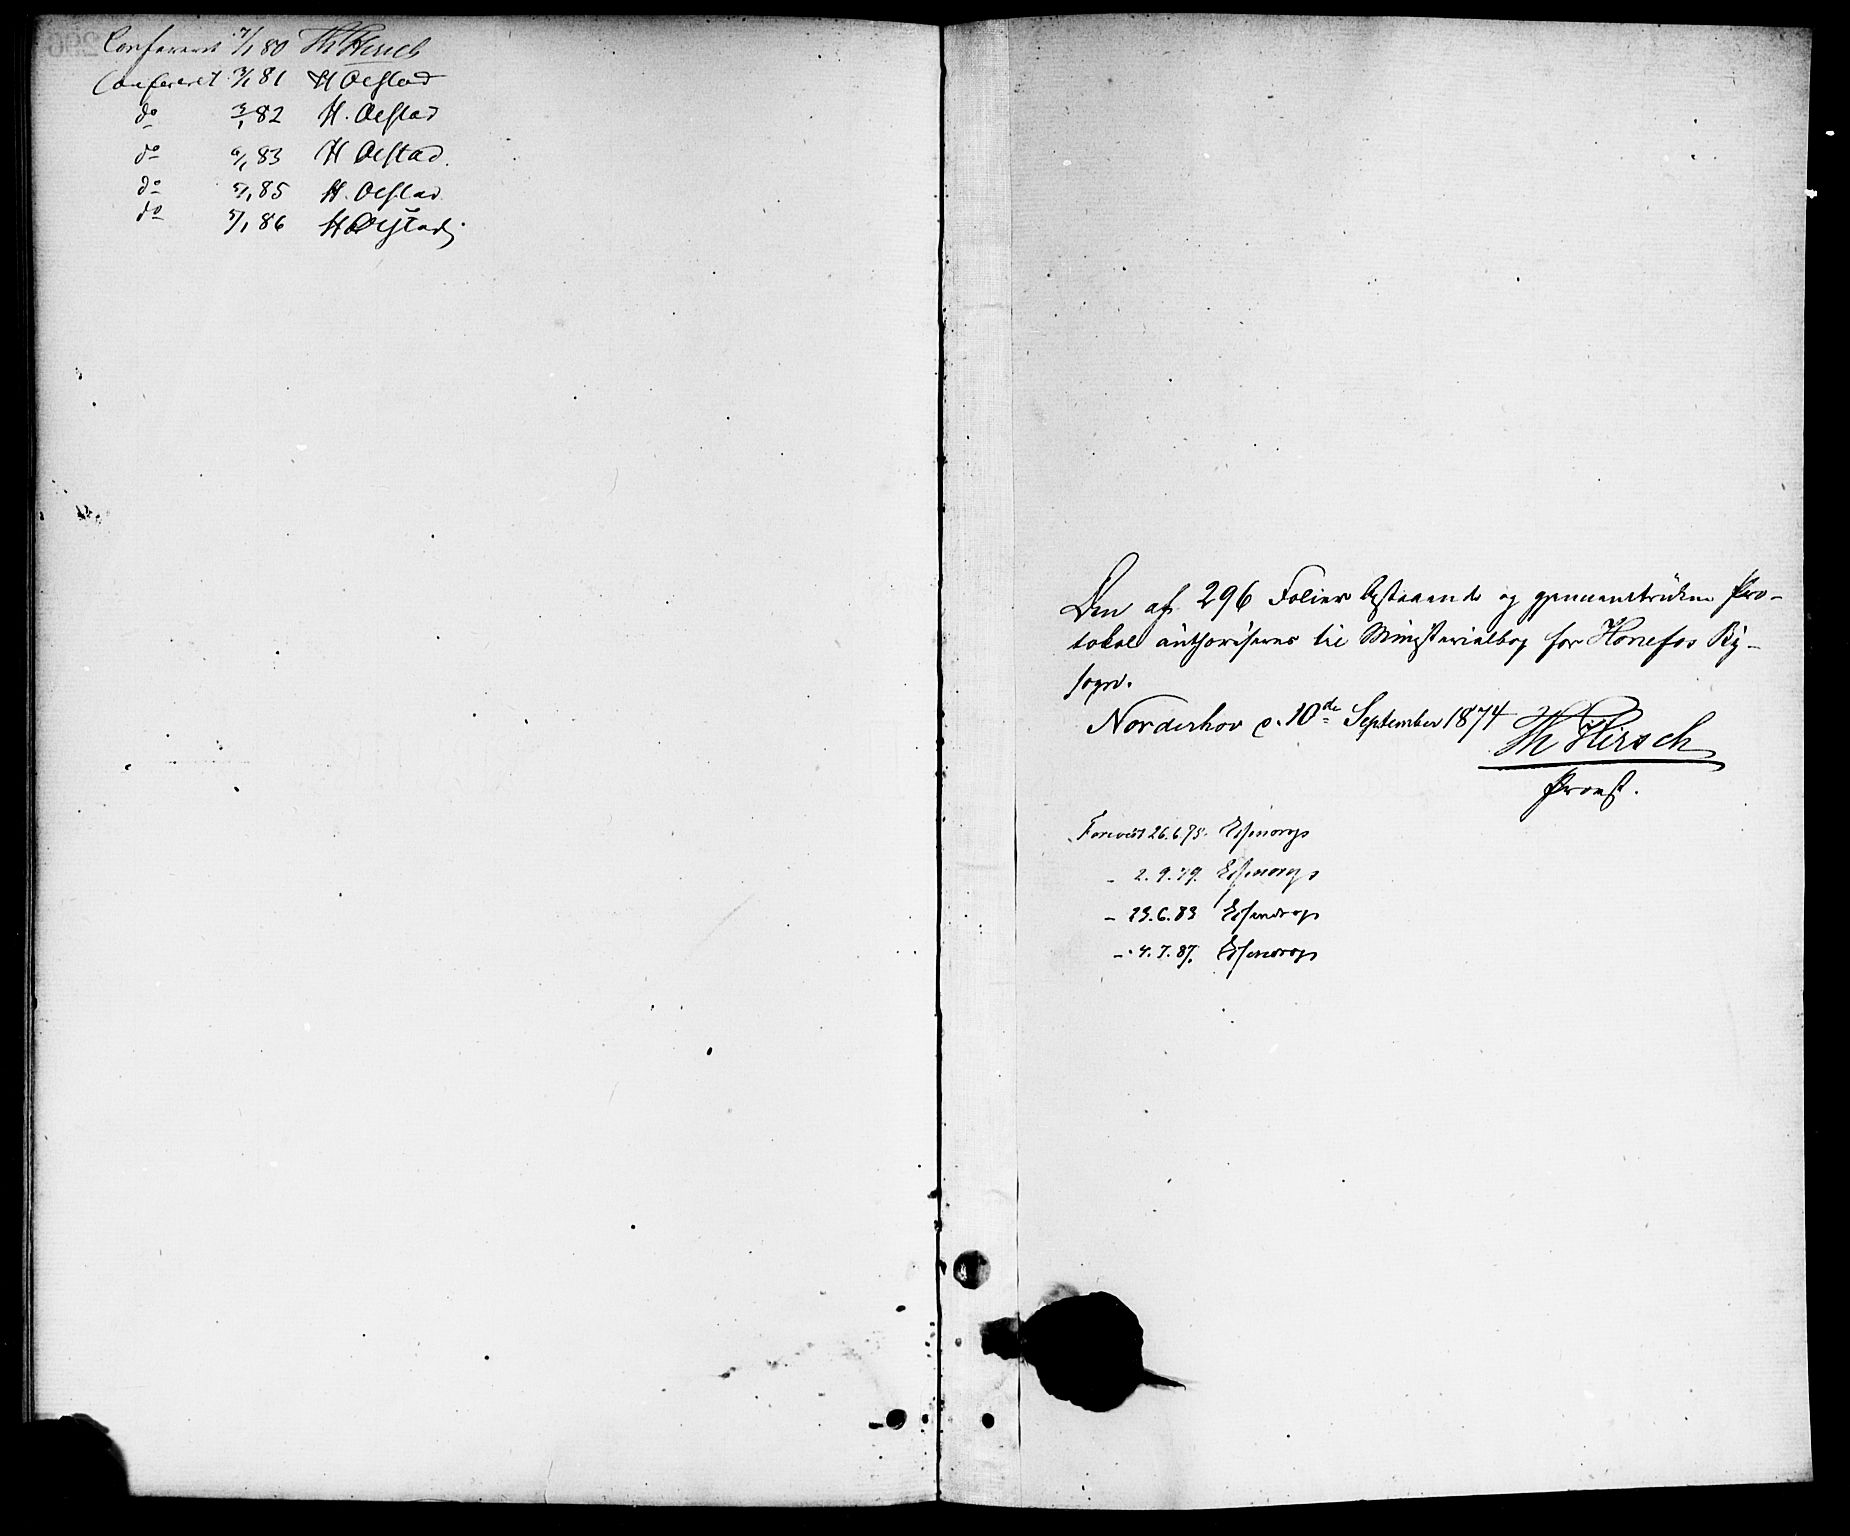 Confereret 7/1 80 Th Hirsch
Confereret 3/1 81 H Oestad
do 3/1 82 H. Oestad
do 6/1 83 H Oestad.
do 5/1 85 H. Oestad
do 5/1 86 H Oestad
Den af 296 Folier bestaaende og gjennemtrukne Pro-
tokol authoriseres til Ministerialbog for Hønefos By-
sogn.
Norderhov d. 10de September 1874
Th Hirsch
Provst.
Forevist 26.6.75. Essendrop
- 2.9.79. Essendrop
- 23.6.83 Essendrop
- 4.7.87. Essendrop